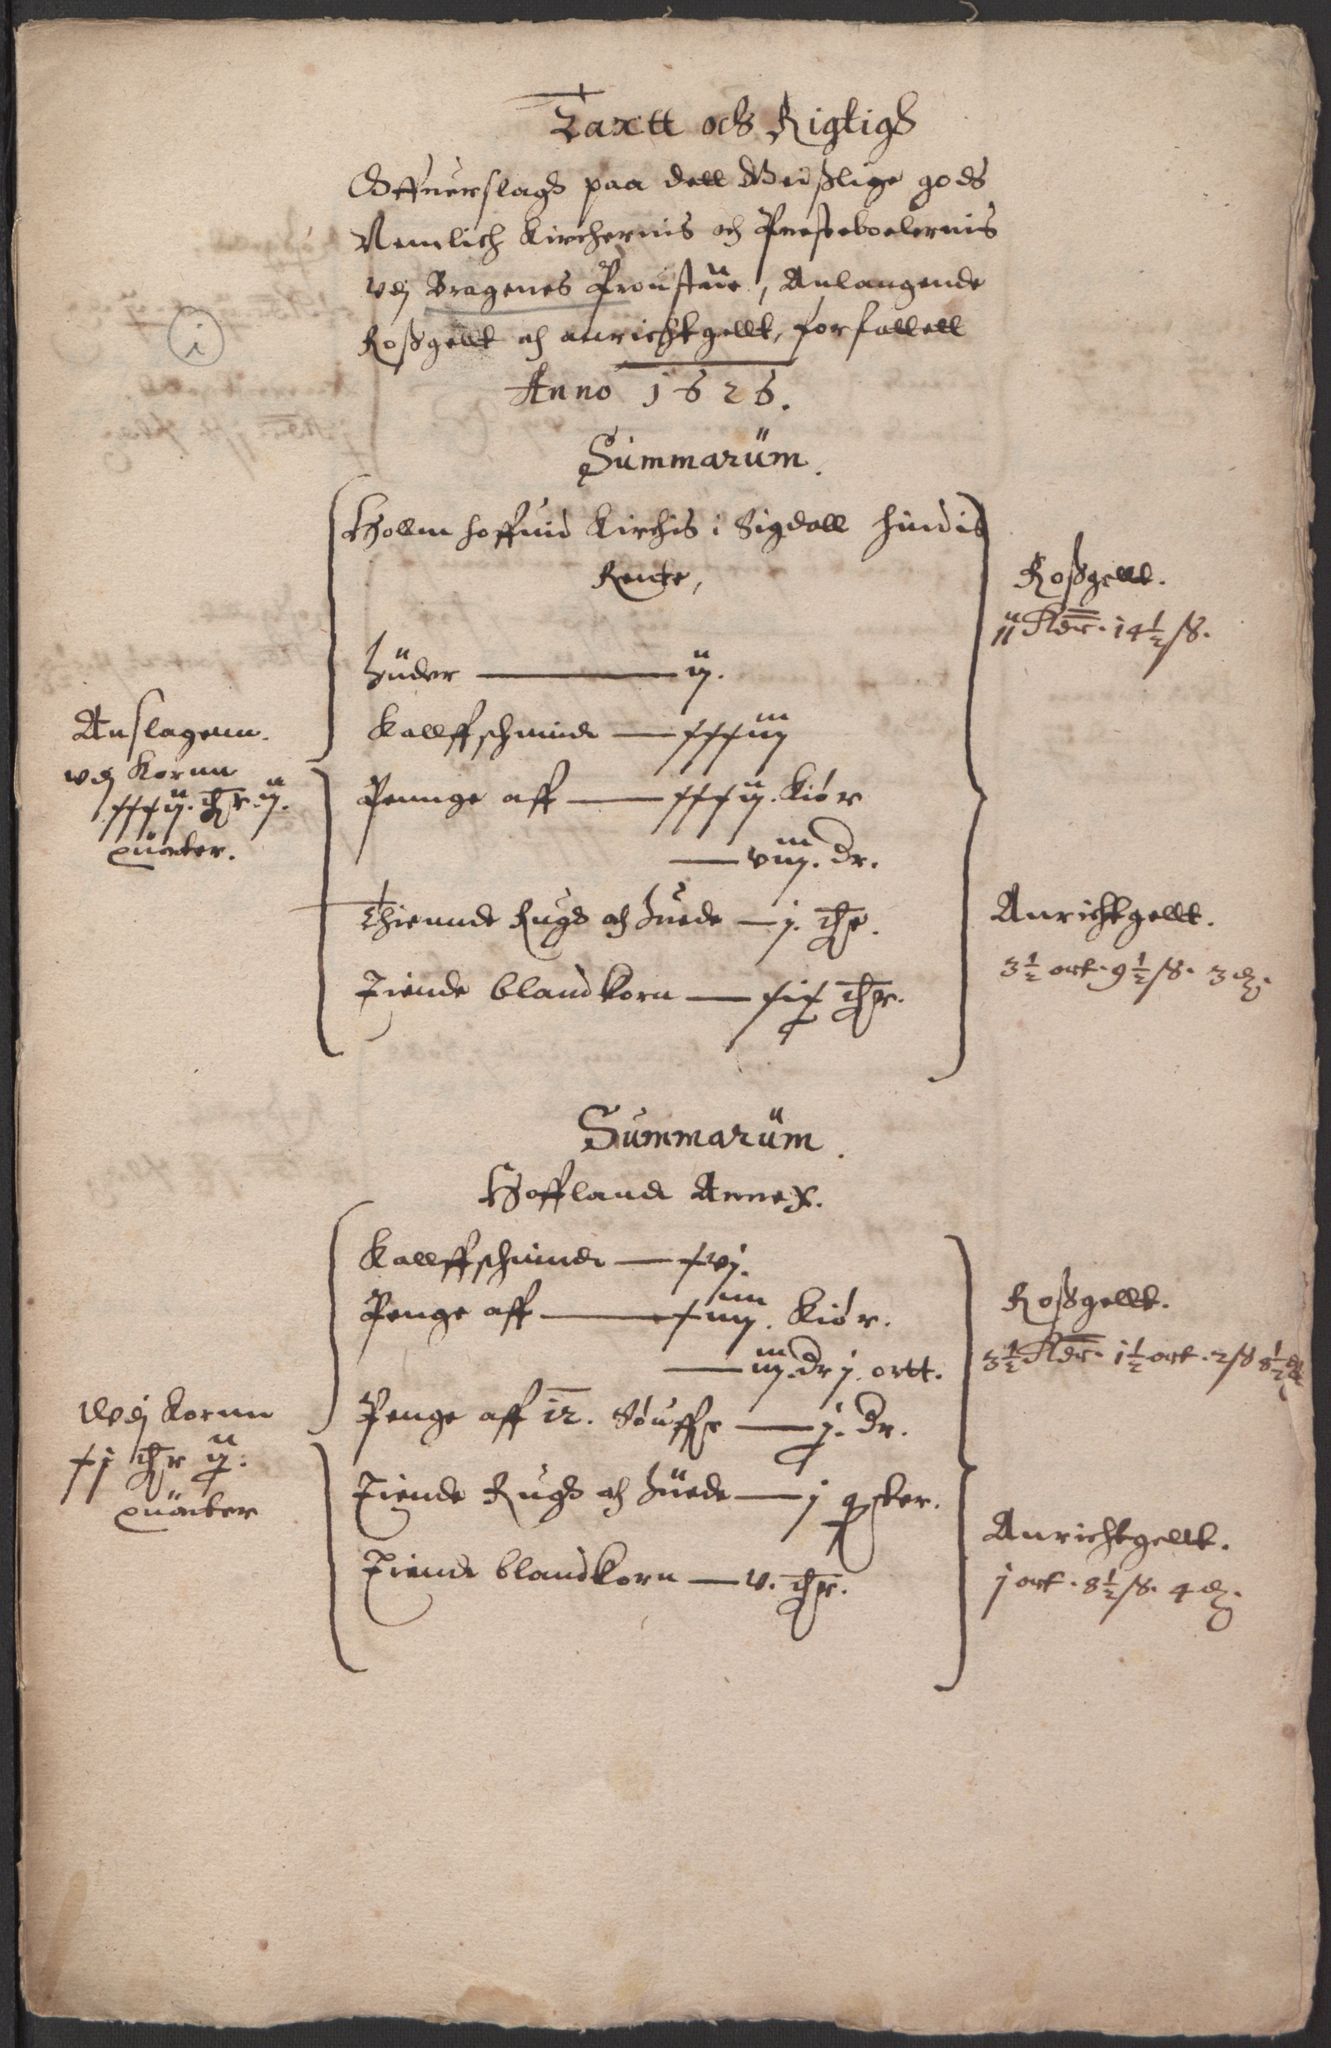 Taxtt och Rigtigh
Offuerslagh paa dell Geistlige gods
Nemlich Kirchernis och Presteboelernis
vdj Bragenes Proustue, Anlangende
Roßgellt och anrichtgellt, forfallell
Anno 1626.
i
Summarüm.
Hollm hoffuid Kirchis i Sigdall hindis
Rente,
Hüder — ij.
Kallffschinde — xxxiij
Penge aff — xxxij. Kiør
— viij. dr.
Thiennde Rugh och Huede — j. thr.
Tiende blandkorn — xix thr.
Anslagenn.
vdj Kornn
xxxij. thr. ij.
quarter.
Roßgellt.
ij Rdr. 14½ ß.
Anrichtgellt.
3½ ort. 9½ ß. 3 ₰
Summarüm.
Hoffland Annex.
Kallffschinde — xvj.
Penge aff — xiiij. Kiør.
— iij. dr j. ortt.
Penge aff 12. Søuffr — j. dr.
Tiende Rugh och Huede — j qrter.
Tiende blandkorn — v. thr.
Vdj Kornn
xj thr ij.
quarter
Roßgellt.
3½ Rdr. 1½ ort. 2 ß 8½ ₰
Anrichtgellt.
j ort. 8½ ß. 4 ₰.